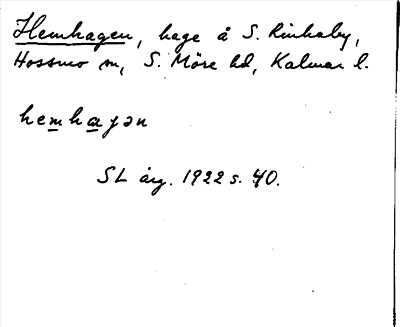 Hemhagen, hage å S. Rinkaby,
Hossmo sn, S. Möre hd, Kalmar l.
hemhaγən
SL årg. 1922 s. 40.